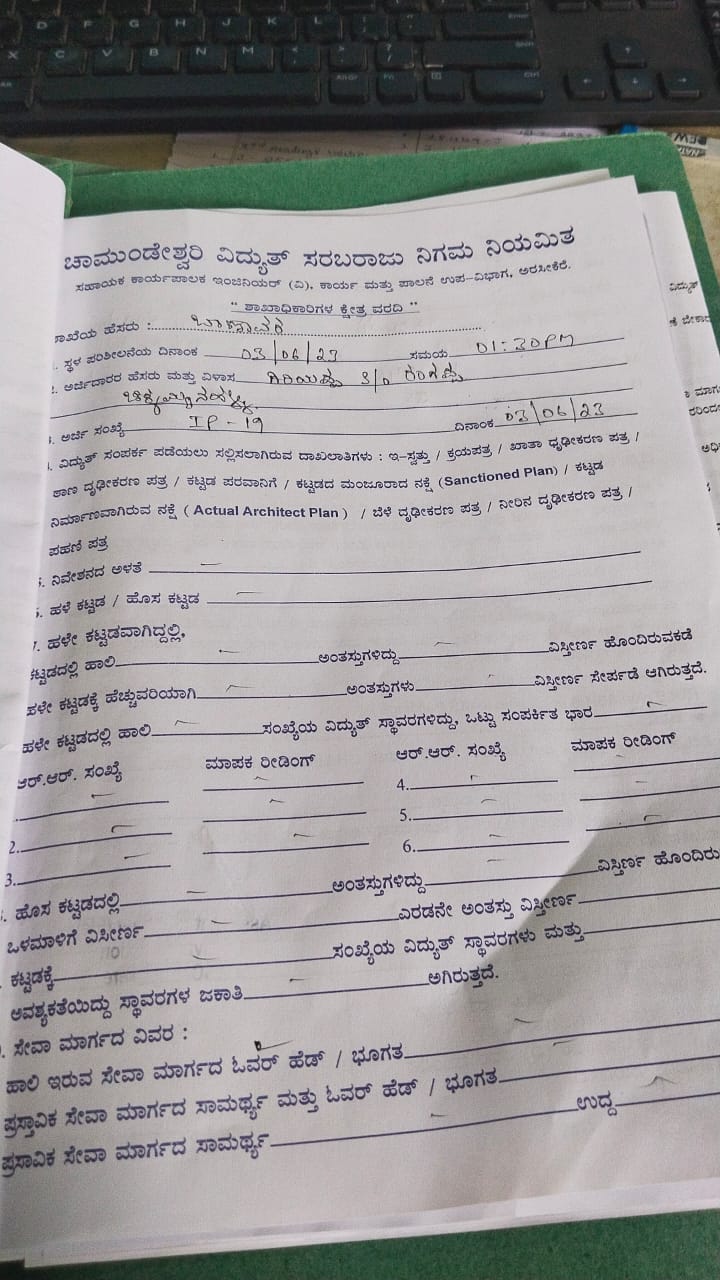 ಚಾಮುಂಡೇಶ್ವರಿ ವಿದ್ಯುತ್ ಸರಬರಾಜು ನಿಗಮ ನಿಯಮಿತ
ಸಹಾಯಕ ಕಾರ್ಯಪಾಲಕ ಇಂಜಿನಿಯರ್ (ವಿ), ಕಾರ್ಯ ಮತ್ತು ಪಾಲನೆ ಉಪ-ವಿಭಾಗ, ಅರಸೀಕೆರೆ.
" ಶಾಖಾಧಿಕಾರಿಗಳ ಕ್ಷೇತ್ರ ವರದಿ "
ಶಾಖೆಯ ಹೆಸರು : ಬಾಣಾವರ
ಸ್ಥಳ ಪರಿಶೀಲನೆಯ ದಿನಾಂಕ 03/06/23 ಸಮಯ 01:30PM
2. ಅರ್ಜಿದಾರರ ಹೆಸರು ಮತ್ತು ವಿಳಾಸ S/o
ಅರ್ಜಿ ಸಂಖ್ಯೆ IP-19 ದಿನಾಂಕ 03/06/23
ವಿದ್ಯುತ್ ಸಂಪರ್ಕ ಪಡೆಯಲು ಸಲ್ಲಿಸಲಾಗಿರುವ ದಾಖಲಾತಿಗಳು : ಇ-ಸ್ವತ್ತು / ಕ್ರಯಪತ್ರ / ಖಾತಾ ಧೃಢೀಕರಣ ಪತ್ರ /
ಠಾಣ ದೃಢೀಕರಣ ಪತ್ರ / ಕಟ್ಟಡ ಪರವಾನಿಗೆ / ಕಟ್ಟಡದ ಮಂಜೂರಾದ ನಕ್ಷೆ (Sanctioned Plan) / ಕಟ್ಟಡ
ನಿರ್ಮಾಣವಾಗಿರುವ ನಕ್ಷೆ ( Actual Architect Plan ) / ಬೆಳೆ ದೃಢೀಕರಣ ಪತ್ರ / ನೀರಿನ ದೃಢೀಕರಣ ಪತ್ರ /
ಪಹಣಿ ಪತ್ರ
5. ನಿವೇಶನದ ಅಳತೆ
6. ಹಳೆ ಕಟ್ಟಡ / ಹೊಸ ಕಟ್ಟಡ
7. ಹಳೇ ಕಟ್ಟಡವಾಗಿದ್ದಲ್ಲಿ,
ಕಟ್ಟಡದಲ್ಲಿ ಹಾಲಿ ಅಂತಸ್ತುಗಳಿದ್ದು ವಿಸ್ತೀರ್ಣ ಹೊಂದಿರುವಕಡೆ
ಹಳೇ ಕಟ್ಟಡಕ್ಕೆ ಹೆಚ್ಚುವರಿಯಾಗಿ ಅಂತಸ್ತುಗಳು ವಿಸ್ತೀರ್ಣ ಸೇರ್ಪಡೆ ಆಗಿರುತ್ತದೆ.
ಹಳೇ ಕಟ್ಟಡದಲ್ಲಿ ಹಾಲಿ ಸಂಖ್ಯೆಯ ವಿದ್ಯುತ್ ಸ್ಥಾವರಗಳಿದ್ದು, ಒಟ್ಟು ಸಂಪರ್ಕಿತ ಭಾರ
ಆರ್.ಆರ್. ಸಂಖ್ಯೆ ಮಾಪಕ ರೀಡಿಂಗ್ ಆರ್.ಆರ್. ಸಂಖ್ಯೆ ಮಾಪಕ ರೀಡಿಂಗ್
4.
2. 5.
3. 6.
ಹೊಸ ಕಟ್ಟಡದಲ್ಲಿ ಅಂತಸ್ತುಗಳಿದ್ದು ವಿಸ್ತಿರ್ಣ ಹೊಂದಿರು
ಒಳಮಾಳಿಗೆ ವಿಸೀರ್ಣ ಎರಡನೇ ಅಂತಸ್ತು ವಿಸ್ತೀರ್ಣ
ಕಟ್ಟಡಕ್ಕೆ ಸಂಖ್ಯೆಯ ವಿದ್ಯುತ್ ಸ್ಥಾವರಗಳು ಮತ್ತು
ಅವಶ್ಯಕತೆಯಿದ್ದು ಸ್ಥಾವರಗಳ ಜಕಾತಿ ಆಗಿರುತ್ತದೆ.
ಸೇವಾ ಮಾರ್ಗದ ವಿವರ :
ಹಾಲಿ ಇರುವ ಸೇವಾ ಮಾರ್ಗದ ಓವರ್ ಹೆಡ್ / ಭೂಗತ
ಪ್ರಸ್ತಾವಿಕ ಸೇವಾ ಮಾರ್ಗದ ಸಾಮರ್ಥ್ಯ ಮತ್ತು ಓವರ್ ಹೆಡ್ / ಭೂಗತ
ಪ್ರಸಾವಿಕ ಸೇವಾ ಮಾರ್ಗದ ಸಾಮರ್ಥ್ಯ ಉದ್ದ